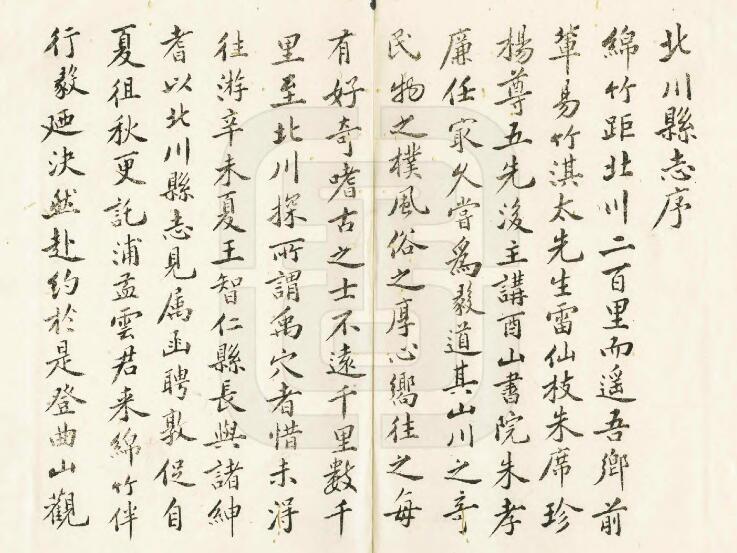 北川縣志序
綿竹距北川二百里而遥吾鄉前
輩易竹淇太先生雷仙枝朱席珍
楊尊五先後主講酉山書院朱孝
廉任㝡久嘗為毅道其山川之奇
民物之樸風俗之厚心嚮往之每
有好奇嗜古之士不遠千里數千
里至北川探所謂禹穴者惜未得
往游辛未夏王智仁縣長與諸紳
耆以北川縣志見属函聘敦促自
夏徂秋更託浦孟雲君来綿竹伴
行毅廼決然赴約於是登曲山觀